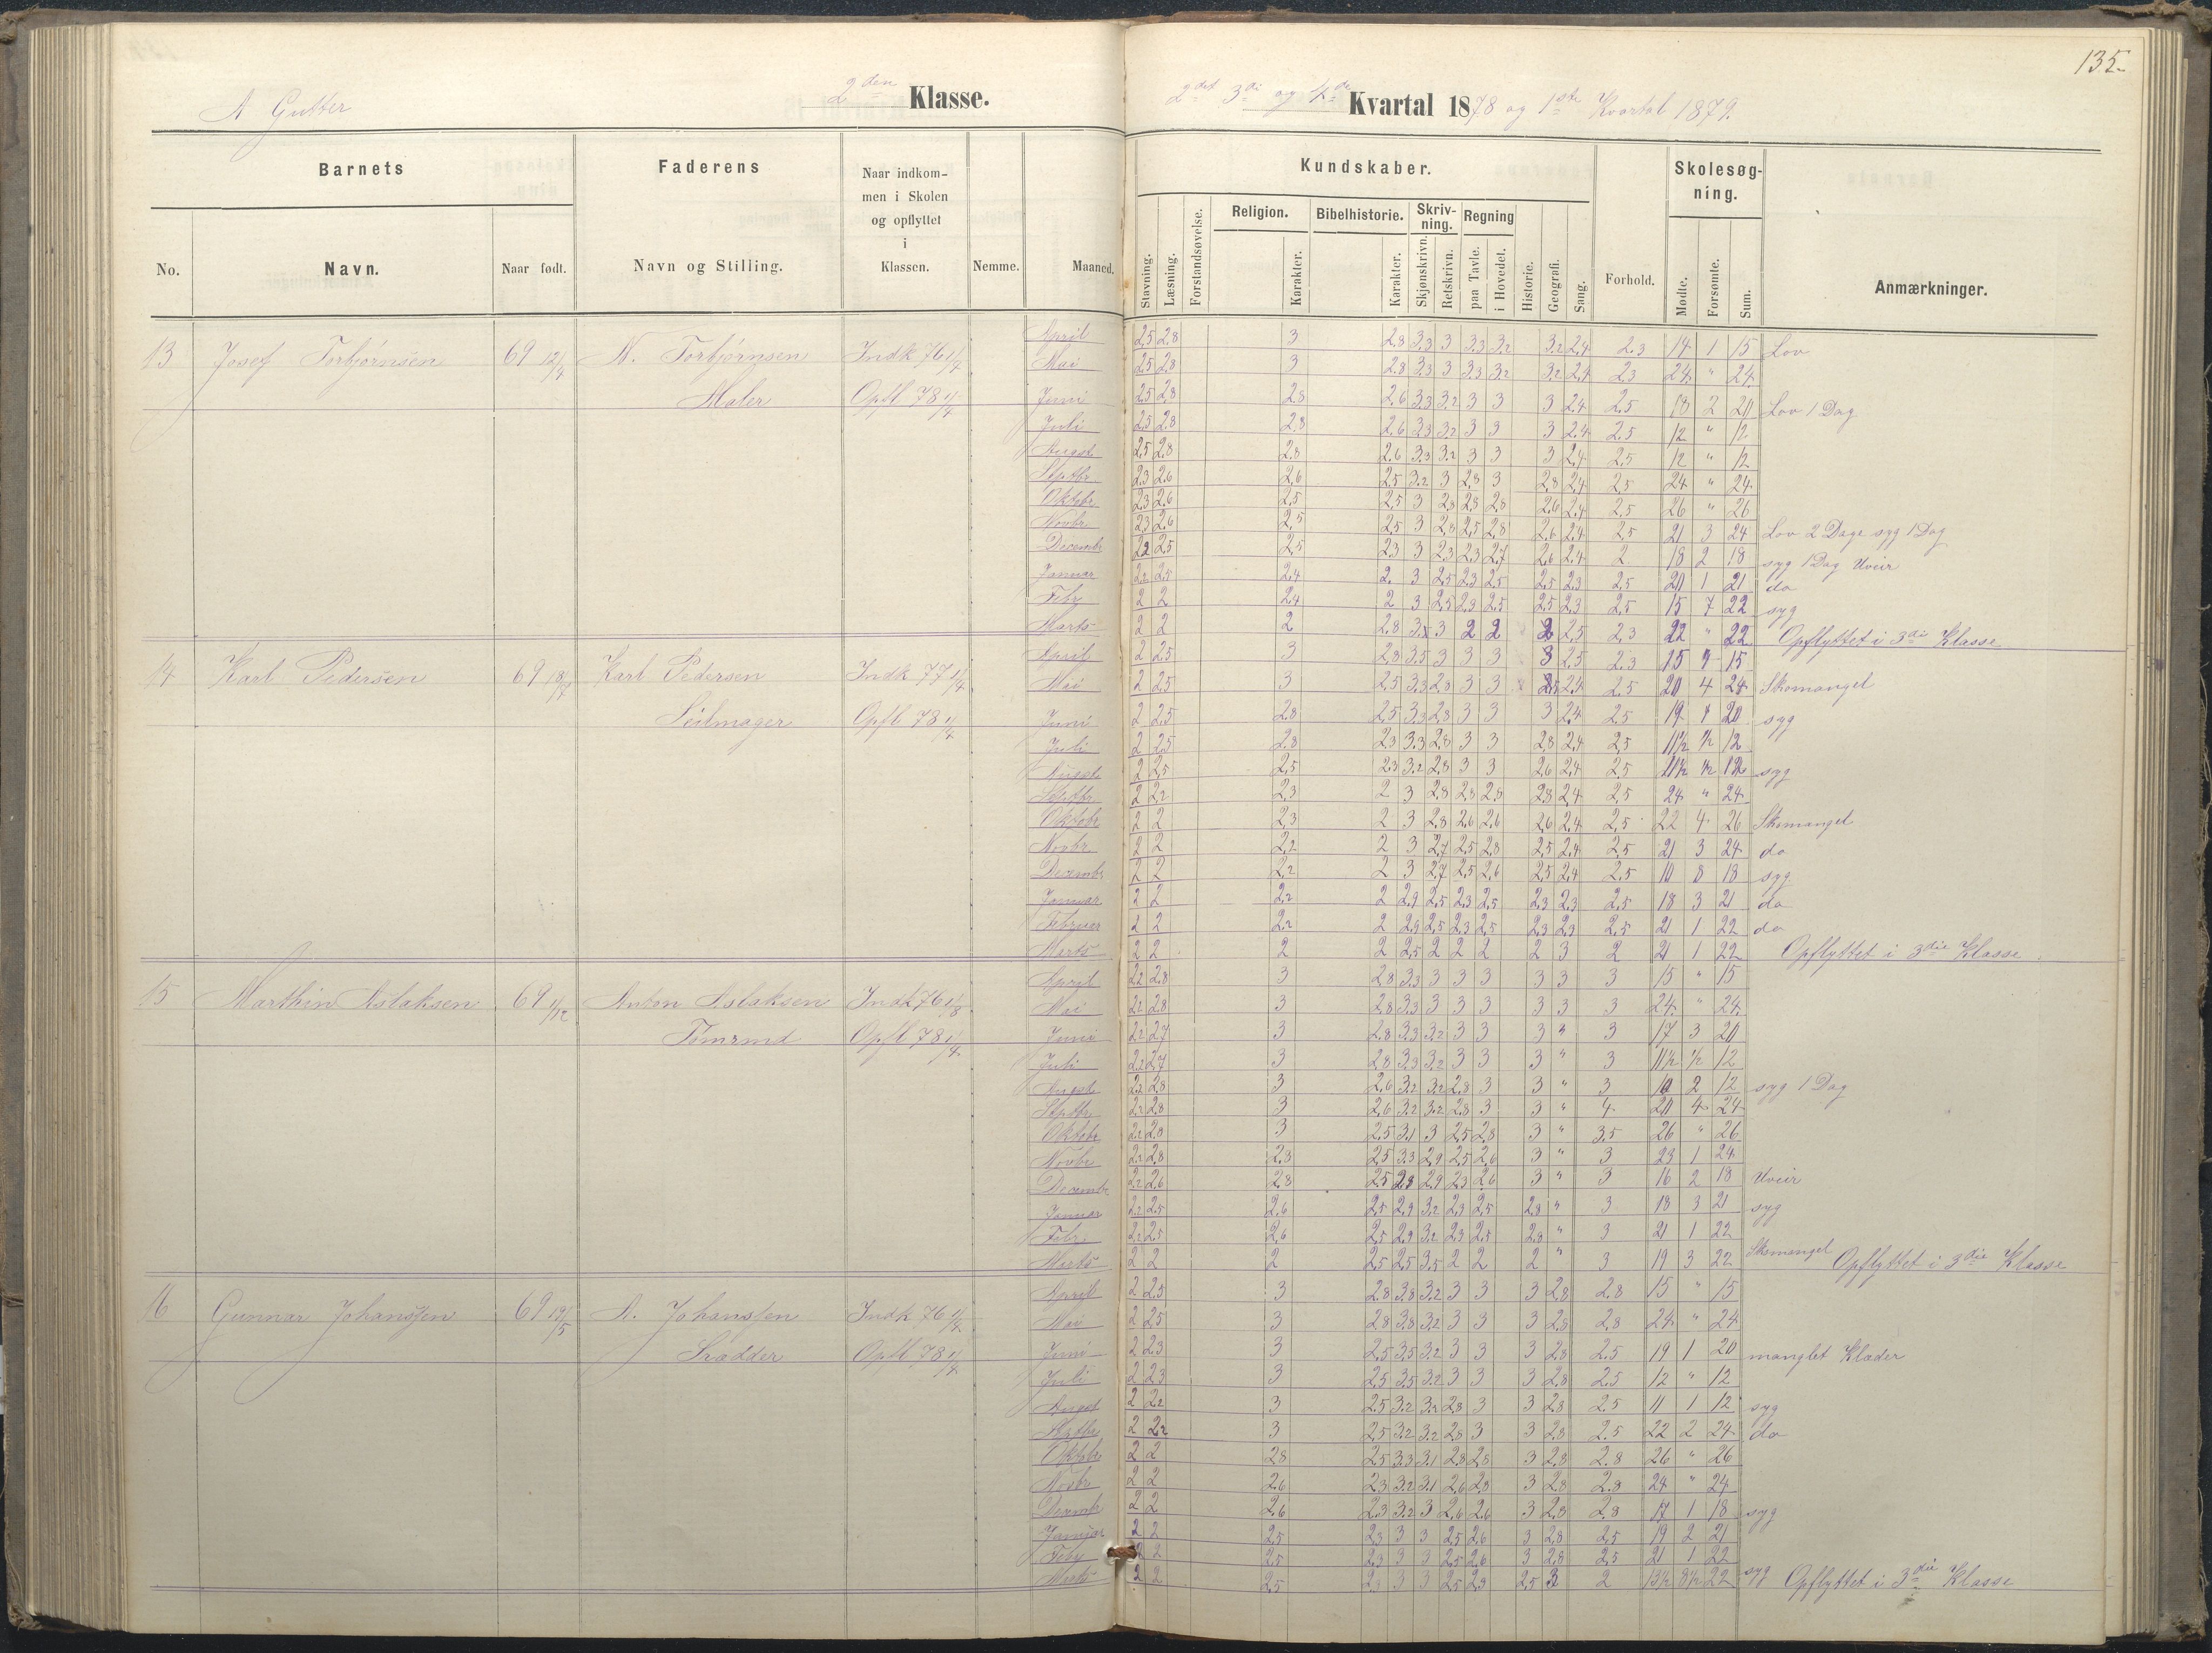 135.
A Gutter
2den Klasse.
2det 3di og 4de Kvartal 1878 og 1ste Kvartal 1879.
Barnets
Faderens
Naar indkommen i Skolen og opflyttet i Klassen.
Kundskaber.
Skolesøgning.
No.
Navn.
Naar født.
Navn og Stilling.
Nemme.
Maaned.
Stavning.
Læsning.
Forstandsøvelse.
Religion.
Karakter.
Bibelhistorie.
Karakter.
Skrivning.
Skjønskrivn.
Retskrivn.
Regning
paa Tavle.
i Hovedet.
Historie.
Geografi.
Sang.
Forhold.
Mødte.
Forsømte.
Sum.
Anmærkninger.
13 Josef Torbjørnsen 69 12/4 N. Torbjørnsen Indk 76 1/4
Maler Opfl 78 1/4
April 2,5 2,8 3 2,8 3,3 3 3,3 3,2 3,2 2,4 2,3 14 1 15 Lov
Mai 2,5 2,8 3 2,8 3,3 3 3,3 3,2 3,2 2,4 2,3 24 " 24
Juni 2,5 2,8 2,8 2,6 3,3 3,2 3 3 3 2,4 2,5 18 2 20 Lov 1 Dag
Juli 2,5 2,8 2,8 2,6 3,3 3,2 3 3 3 2,4 2,5 12 " 12
Augst 2,5 2,8 2,8 2,6 3,3 3,2 3 3 3 2,4 2,5 12 " 12
Septbr 2,3 2,6 2,6 2,5 3,2 3 2,8 3 2,8 2,4 2,5 24 " 24
Oktobr 2,3 2,6 2,5 2,5 3 2,8 2,8 2,8 2,6 2,4 2,5 26 " 26
Novbr 2,3 2,6 2,5 2,5 3 2,8 2,5 2,8 2,6 2,4 2,5 21 3 24 Lov 2 Dage syg 1 Dag
Decembr 2,2 2,5 2,5 2,3 3 2,3 2,3 2,7 2,6 2,4 2 18 2 18 syg 1 Dag Uveir
Januar 2,2 2,5 2,4 2 3 2,5 2,3 2,5 2,5 2,3 2,5 20 1 21 do
Feby 2 2 2,4 2 3 2,5 2,3 2,5 2,5 2,3 2,5 15 7 22 syg
Marts 2 2 2 2,8 3 2 2 2 2,5 2,3 22 " 22 Opflyttet i 3die Klasse
14 Karl Pedersen 69 18/7 Karl Pedersen Indk 77 1/4
Seilmager Opfl 78 1/4
April 2 2,5 3 2,3 3,5 3 3 3 3 2,5 2,3 15 " 15
Mai 2 2,5 3 2,5 3,3 2,8 3 3 2,4 2,5 20 4 24 Skomangel
Juni 2 2,5 2,8 2,5 3,3 2,8 3 3 3 2,4 2,5 19 1 20 syg
Juli 2 2,5 2,8 2,3 3,3 2,8 3 3 2,8 2,4 2,5 11½ ½ 12
August 2 2,5 2,5 2,3 3,2 2,8 3 3 2,6 2,4 2,5 11½ ½ 12 syg
Septbr 2 2,2 2,3 2 3 2,8 2,8 2,8 2,8 2,4 2,5 24 " 24
Oktobr 2 2 2,3 2 3 2,8 2,6 2,6 2,6 2,4 2,5 22 4 26 Skomangel
Novbr 2 2 2,2 2 3 2,7 2,5 2,8 2,5 2,4 2,5 21 3 24 do
Decembr 2 2 2,2 2 3 2,7 2,5 2,6 2,5 2,4 2,5 10 8 18 syg
Januar 2 2 2,2 2 2,9 2,5 2,3 2,5 2,3 2,3 2,5 18 3 21 do
Februar 2 2 2,2 2 2,9 2,5 2,3 2,5 2,3 2,3 2,5 21 1 22 do
Marts 2 2 2 2 2,5 2 2 2 2 3 2 21 1 22 Opflyttet i 3die Klasse
15 Marthin Aslaksen 69 1/12 Anton Aslaksen Indk 76 1/8
Tømrmd Opfl 78 1/4
April 2,2 2,8 3 2,8 3,3 3 3 3 3 3 3 15 " 15
Mai 2,2 2,8 3 2,8 3,3 3 3 3 3 3 3 24 " 24
Juni 2,2 2,7 3 2,8 3,3 3,2 3 3 3 " 3 17 3 20
Juli 2,2 2,7 3 2,8 3,3 3,2 3 3 3 " 3 11½ ½ 12
Augst 2,2 2,8 3 2,6 3,2 3,2 2,8 3 3 " 3 10 2 12 syg 1 Dag
Septbr 2,2 2,8 3 2,6 3,2 3,2 2,8 3 3 " 4 20 4 24
Oktobr 2,2 2,8 3 2,5 3,1 3 2,5 2,8 3 " 3,5 26 " 26
Novbr 2,2 2,8 2,8 2,5 3,3 2,9 2,5 2,6 3 " 3 23 1 24
Decembr 2,2 2,6 2,8 2,5 2,9 2,3 2,6 3 " 3 16 2 18 Uveir
Januar 2,2 2,5 2,6 2,5 2,9 3,2 2,3 2,5 2,8 " 3 18 3 21 syg
Febr 2,2 2,5 2,6 2,5 2,9 3,2 2,3 2,5 2,8 " 3 21 1 22
Marts 2 2 2 2,5 2,5 3,5 2 2 2 " 3 19 3 22 Skomangel Opflyttet i 3die Klasse
16 Gunnar Johanssen 69 19/5 A. Johanssen Indk 76 1/4
Skrædder Opfl 78 1/4
April 2 2,5 3 2,8 3,8 3,2 3 3 3 2,8 2,8 15 " 15
Mai 2 2,5 3 2,8 3,8 3,2 3 3 3 2,8 2,8 24 " 24
Juni 2 2,3 3 2,5 3,5 3,2 3 3 3 2,8 2,5 19 1 20 manglet Klæder
Juli 2 2,3 3 2,5 3,5 3,2 3 3 3 2,8 2,5 12 " 12
Augst 2 2,2 3 2,5 3,2 3,2 2,8 3 3 2,8 2,5 11 1 12 syg
Septbr 2 2,2 3 2,5 3,2 3,2 2,8 3 3 2,8 2,5 22 2 24 do
Oktobr 2 2 2,8 2,5 3,3 3,1 2,8 2,8 3 2,8 2,8 26 " 26
Novbr 2 2 2,6 2,3 3,2 3,1 2,6 2,8 3 2,8 2,8 24 " 24
Decmbr 2 2 2,6 2,3 3,2 3 2,6 2,6 3 2,8 2,8 17 1 18 syg
Januar 2 2 2,5 2,3 3 3 2,5 2,6 3 2,8 2,5 19 2 21
Feby 2 2 2,5 2,3 3 3 2,5 2,6 3 2,8 2,5 21 1 22
Marts 2 2 2,5 2,3 3 3 2,5 2,3 2,5 3 2 13½ 8½ 22 syg Opflyttet i 3die Klasse